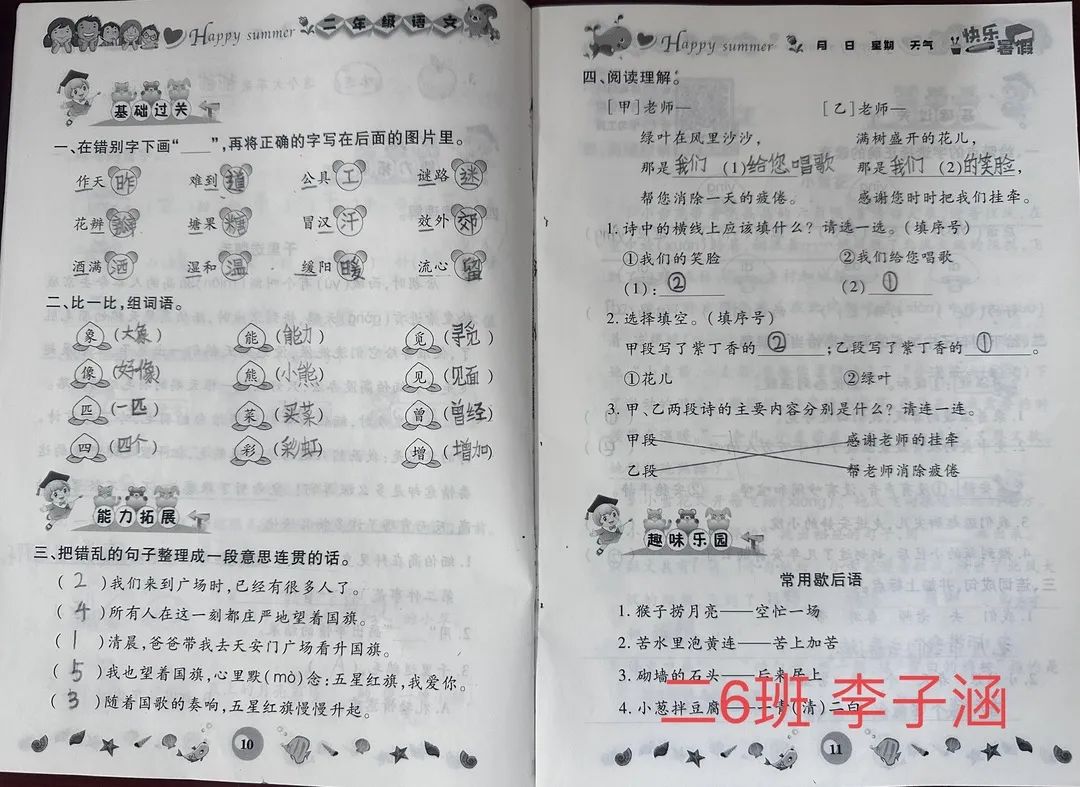 Happy summer 二年级语文
基础过关
一、在错别字下画“____”,再将正确的字写在后面的图片里。
作天 昨 难到 道 公具 工 谜路 迷
花辨 瓣 塘果 糖 冒汉 汗 效外 郊
酒满 洒 湿和 温 缓阳 暖 流心 留
二、比一比,组词语。
象(大象) 能(能力) 觅(寻觅)
像(好像) 熊(小熊) 见(见面)
匹(一匹) 菜(买菜) 曾(曾经)
四(四个) 彩(彩虹) 增(增加)
能力拓展
三、把错乱的句子整理成一段意思连贯的话。
(2)我们来到广场时,已经有很多人了。
(4)所有人在这一刻都庄严地望着国旗。
(1)清晨,爸爸带我去天安门广场看升国旗。
(5)我也望着国旗,心里默(mò)念:五星红旗,我爱你。
(3)随着国歌的奏响,五星红旗慢慢升起。
10
Happy summer 月 日 星期 天气 快乐暑假
四、阅读理解。
[甲]老师— [乙]老师—
绿叶在风里沙沙, 满树盛开的花儿,
那是我们 (1)给您唱歌 那是我们 (2)的笑脸,
帮您消除一天的疲倦。 感谢您时时把我们挂牵。
1. 诗中的横线上应该填什么? 请选一选。(填序号)
①我们的笑脸 ②我们给您唱歌
(1):② (2) ①
2. 选择填空。(填序号)
甲段写了紫丁香的②;乙段写了紫丁香的①。
①花儿 ②绿叶
3. 甲、乙两段诗的主要内容分别是什么? 请连一连。
甲段 感谢老师的挂牵
乙段 帮老师消除疲倦
趣味乐园
常用歇后语
1. 猴子捞月亮——空忙一场
2. 苦水里泡黄连——苦上加苦
3. 砌墙的石头——后来居上
4. 小葱拌豆腐——一青(清)二白
二6班 李子涵
11